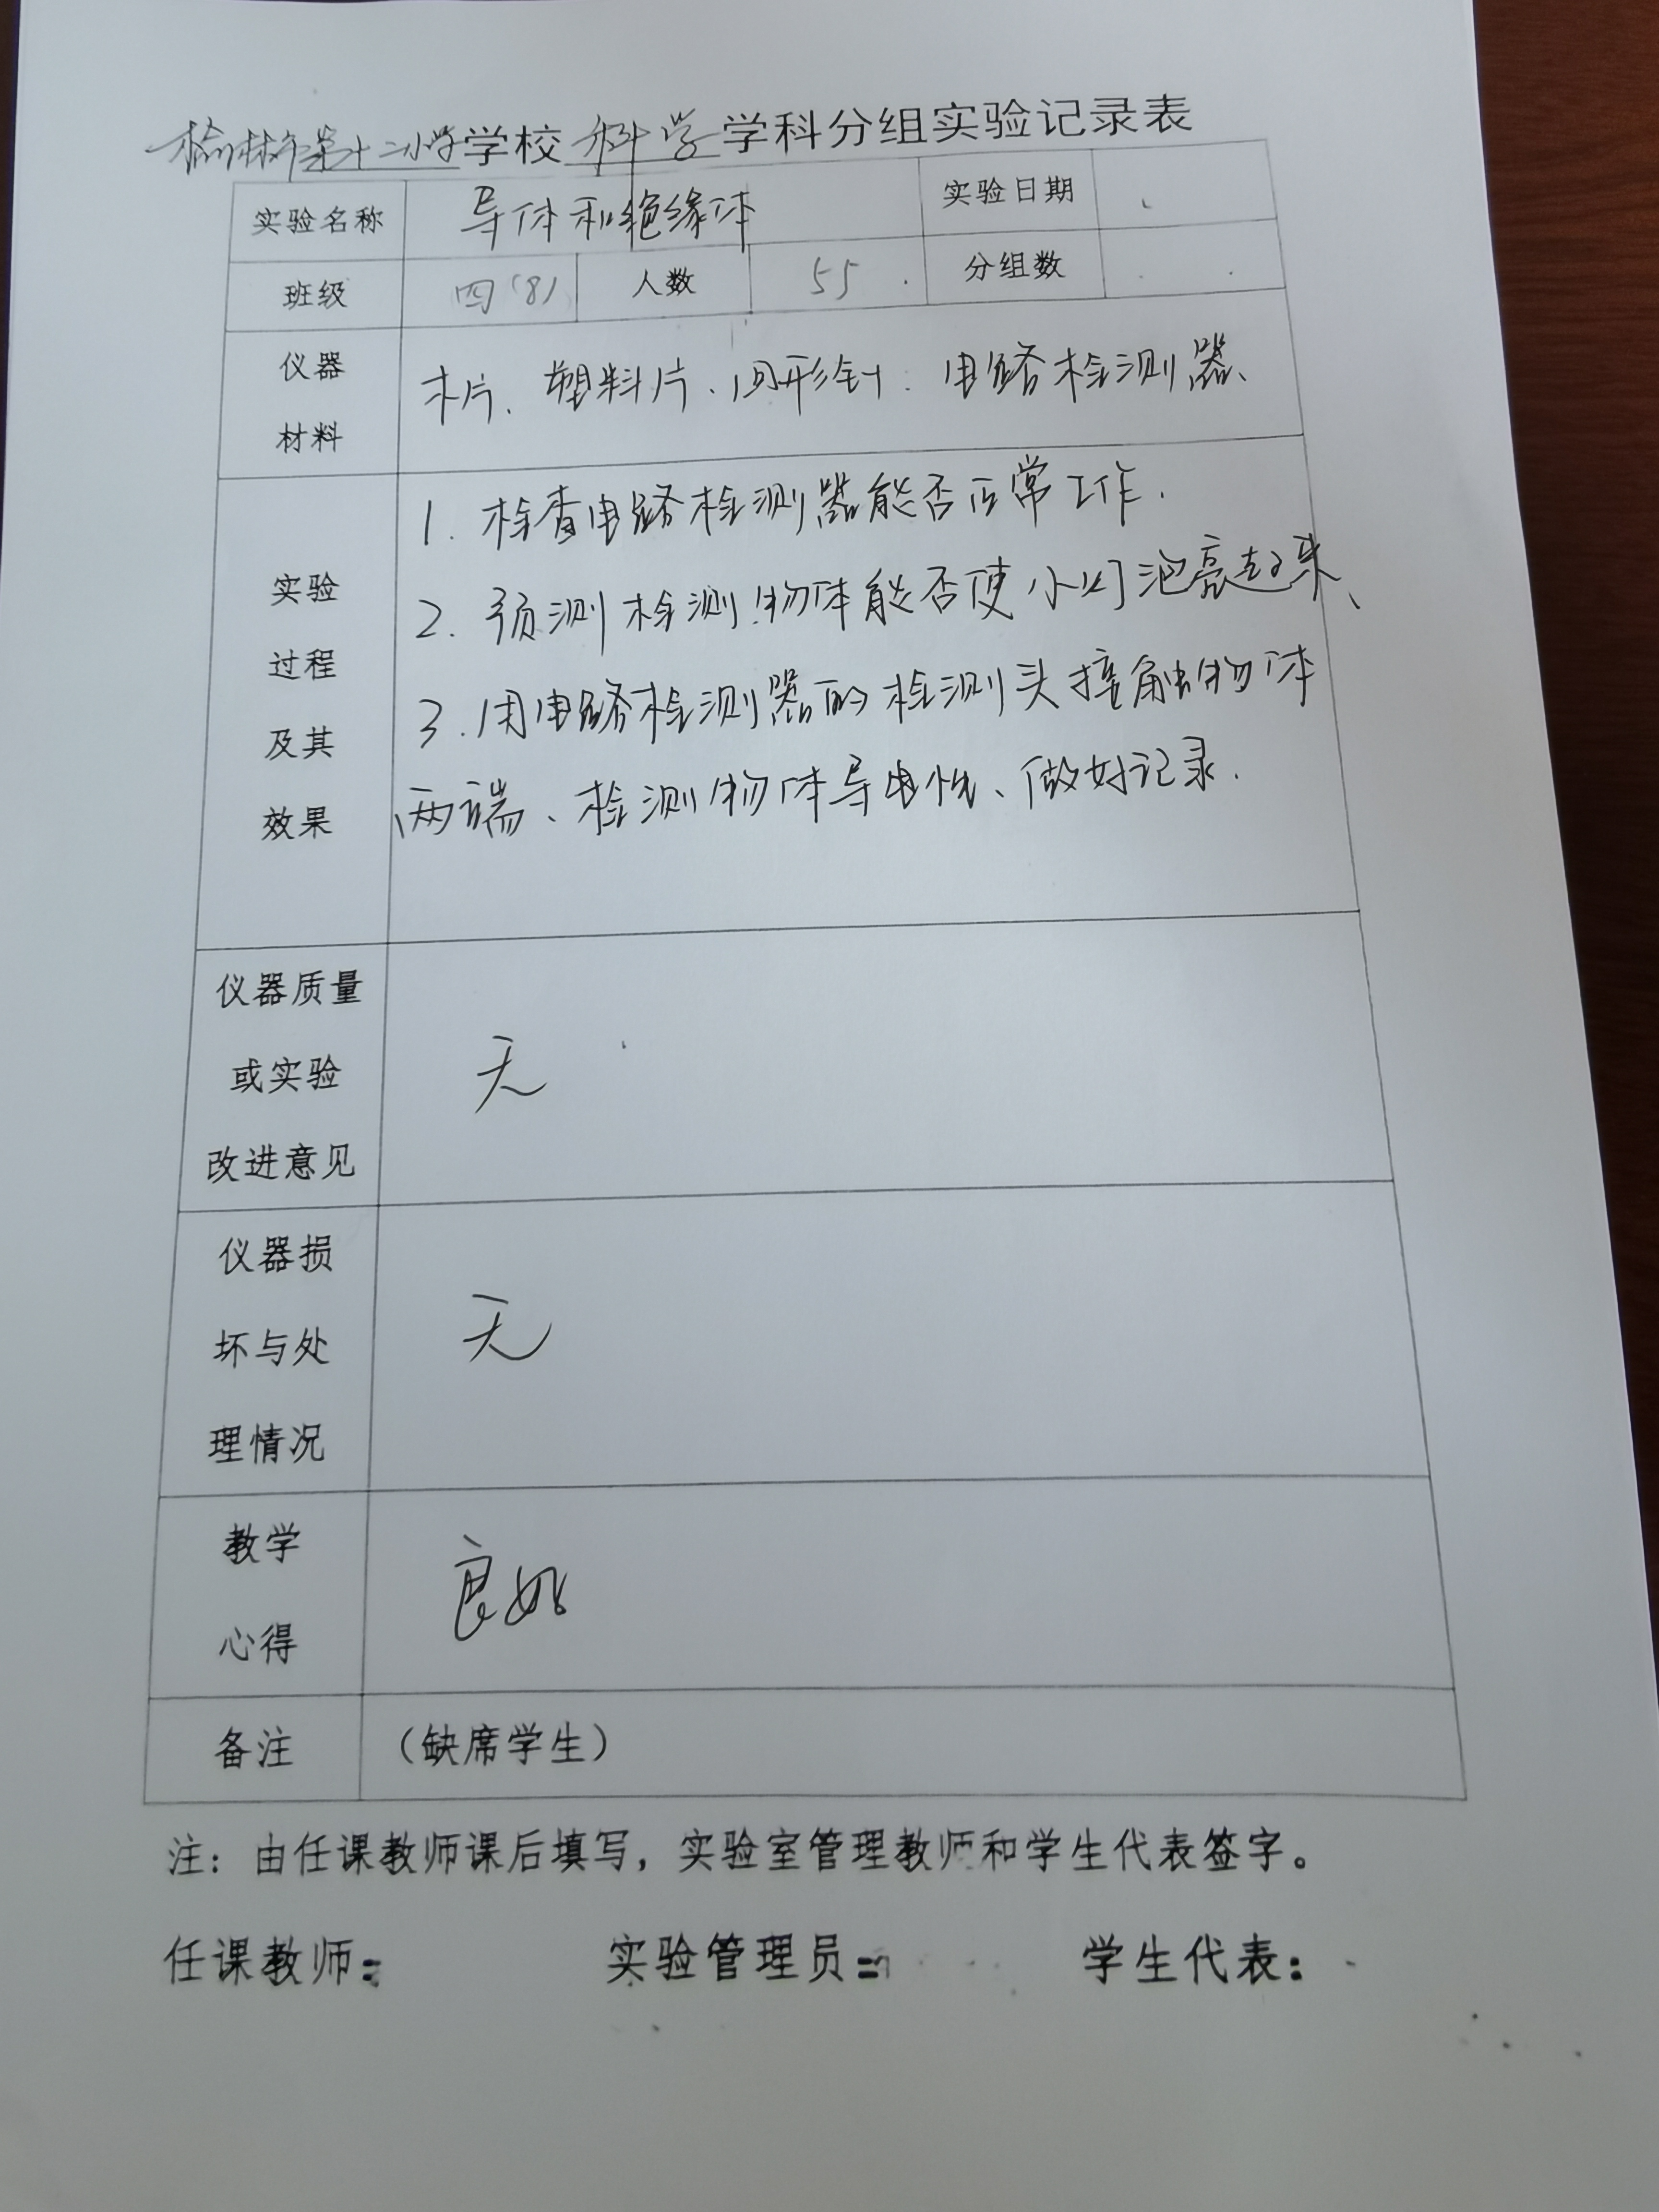 榆林市第十二小学学校科学学科分组实验记录表
实验名称 导体和绝缘体 实验日期
班级 四(8) 人数 55 分组数
仪器
材料
木片、塑料片、回形针、电路检测器、
实验
过程
及其
效果
1. 检查电路检测器能否正常工作.
2. 预测检测物体能否使小灯泡亮起来、
3. 用电路检测器的检测头接触物体
两端、检测物体导电性、做好记录.
仪器质量
或实验
改进意见
无
仪器损
坏与处
理情况
无
教学
心得
良好
备注 (缺席学生)
注：由任课教师课后填写，实验室管理教师和学生代表签字。
任课教师： 实验管理员： 学生代表：